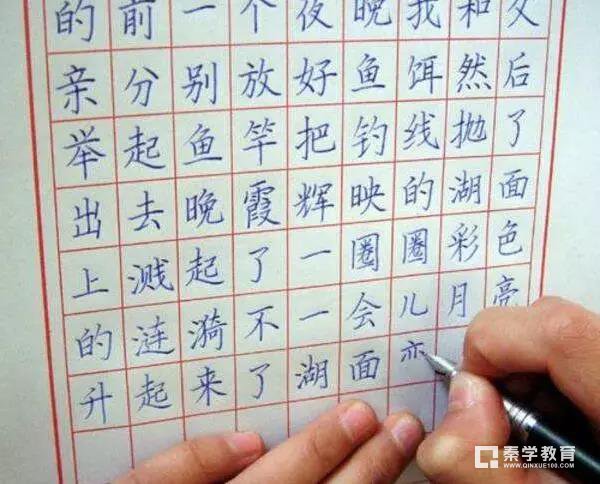 的前一个夜晚我和父
亲分别放好鱼饵然后
举起鱼竿把钓线抛了
出去晚霞辉映的湖面
上溅起了一圈圈彩色
的涟漪不一会儿月亮
升起来了湖面
秦学教育
WWW.QINXUE100.COM